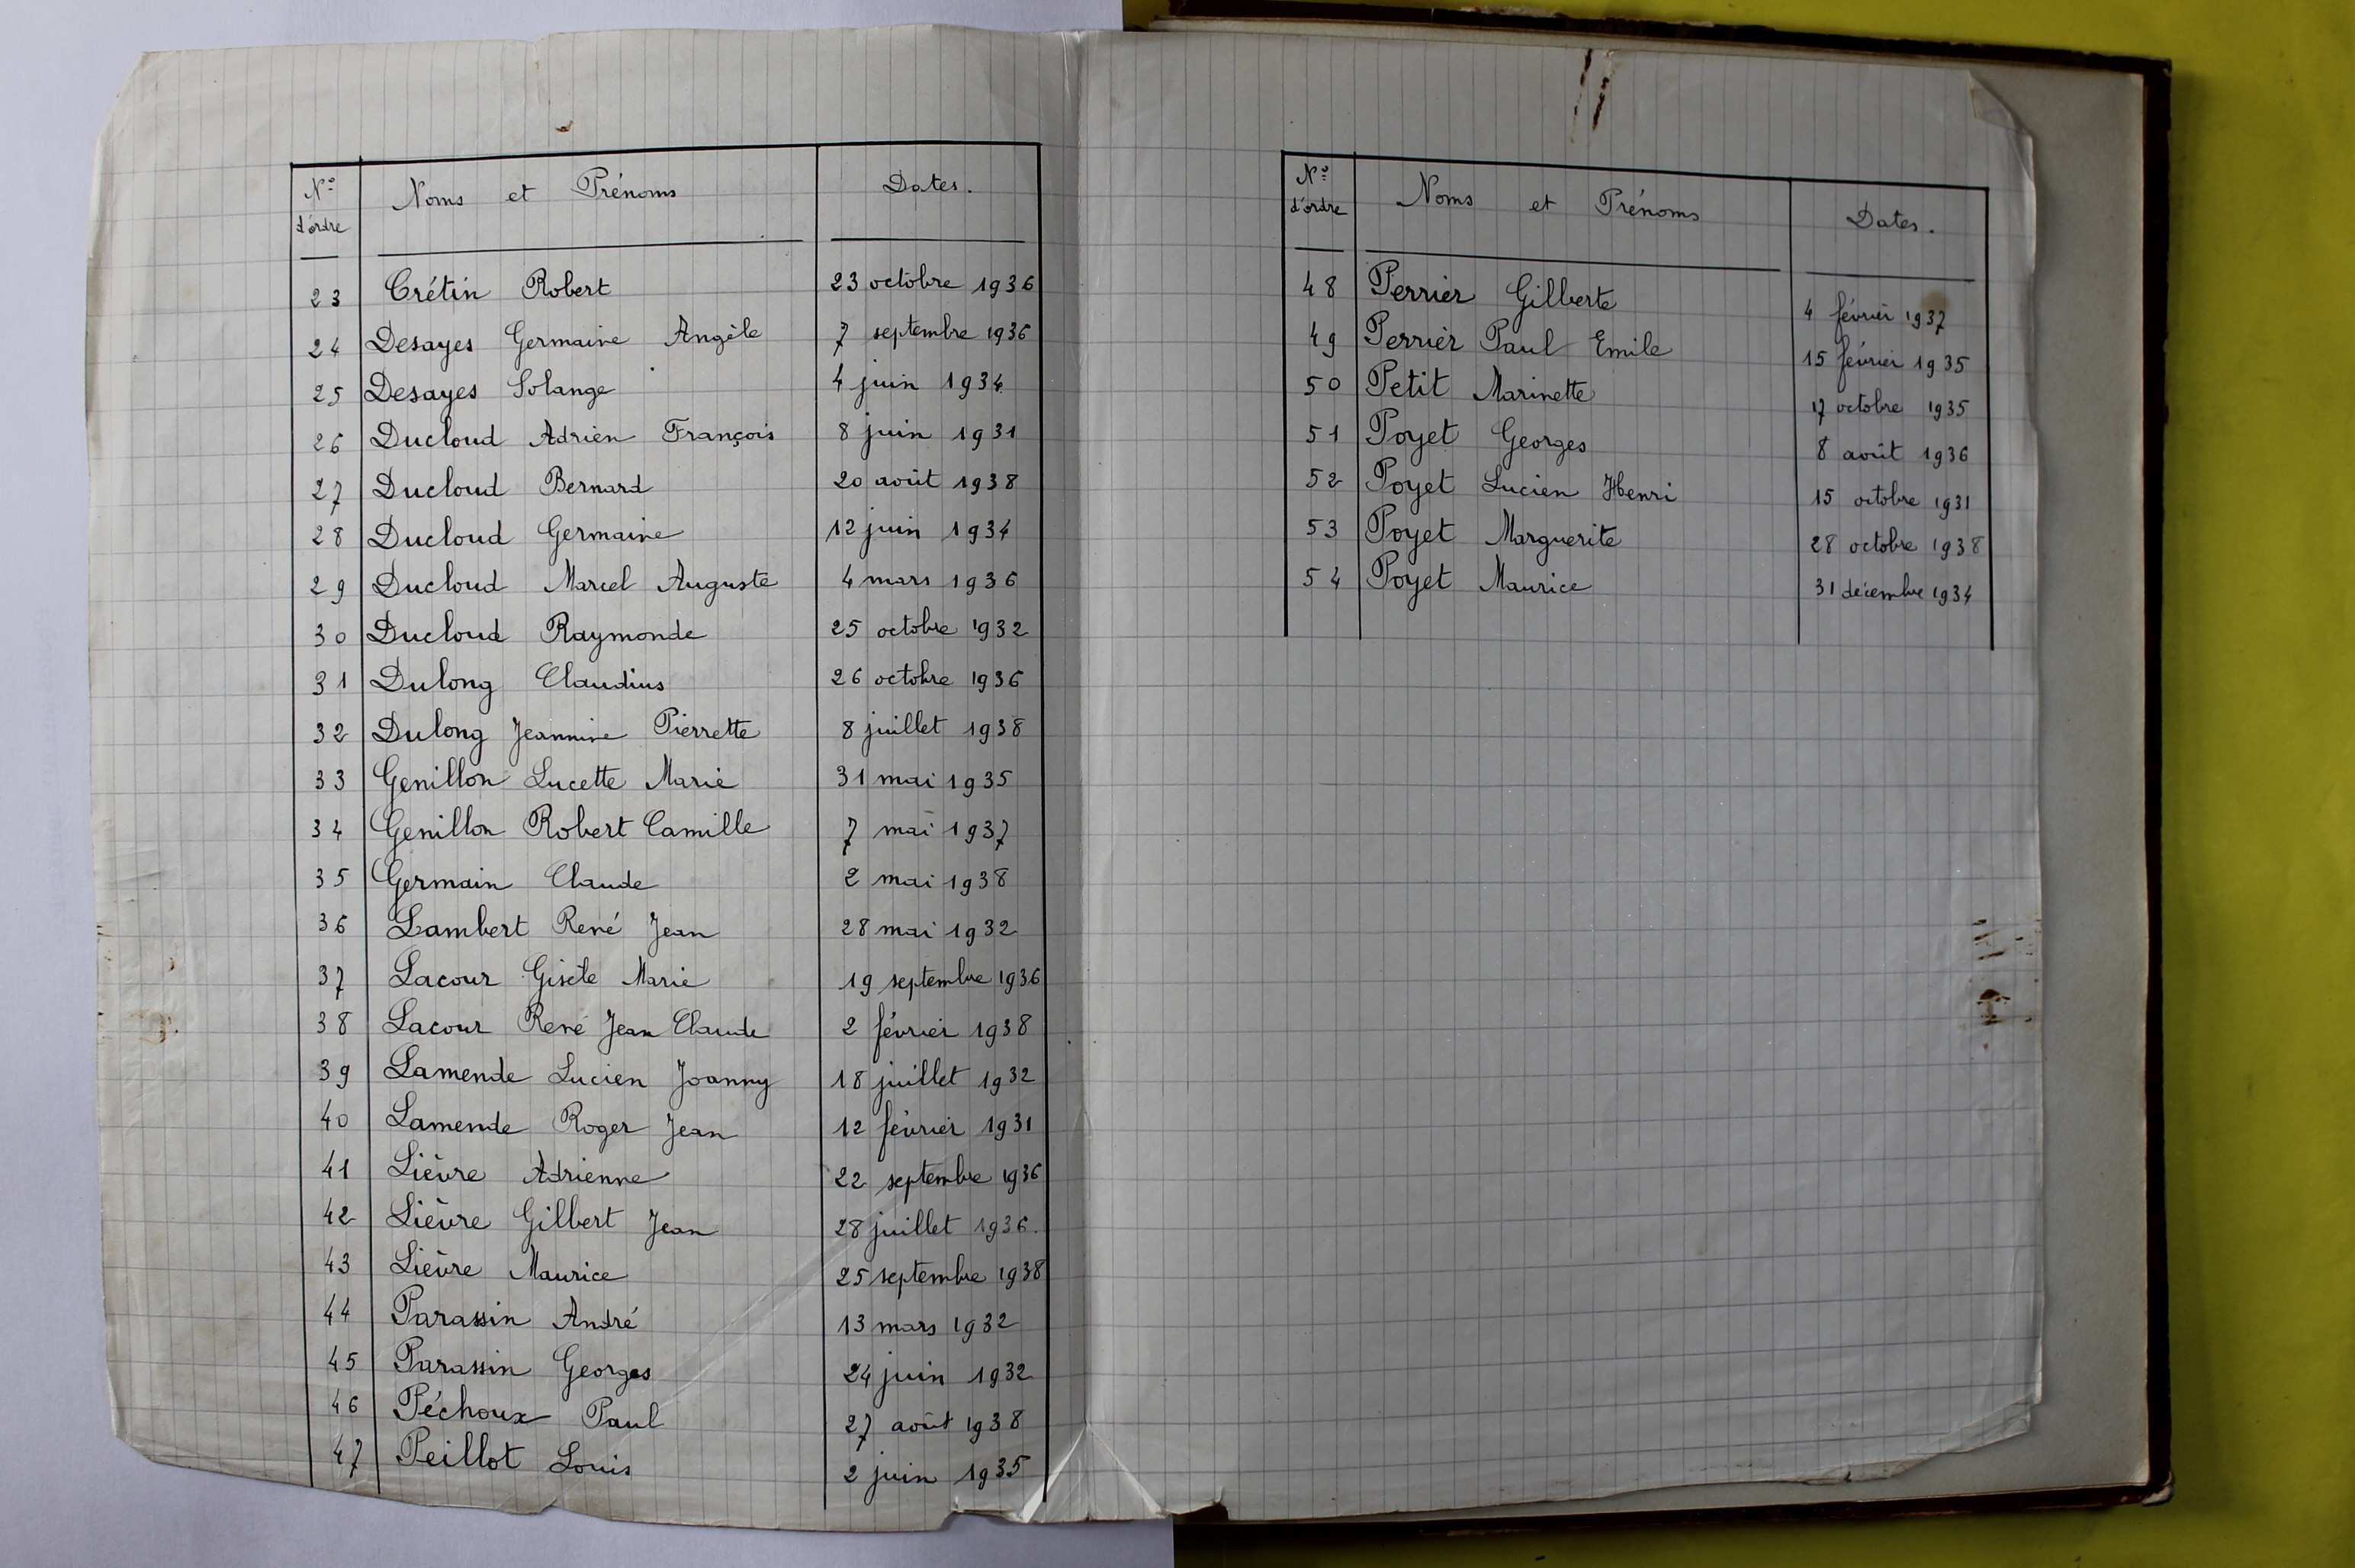 Nos Noms et Prénoms Dates.
d'ordre
23 Crétin Robert 23 octobre 1936
24 Desayes Germaine Angèle 7 septembre 1936
25 Desayes Solange 4 juin 1934
26 Ducloud Adrien François 8 juin 1931
27 Ducloud Bernard 20 août 1938
28 Ducloud Germaine 12 juin 1934
29 Ducloud Marcel Auguste 4 mars 1936
30 Ducloud Raymonde 25 octobre 1932
31 Dulong Claudius 26 octobre 1936
32 Dulong Jeannine Pierrette 8 juillet 1938
33 Genillon Lucette Marie 31 mai 1935
34 Genillon Robert Camille 7 mai 1937
35 Germain Claude 2 mai 1938
36 Lambert René Jean 28 mai 1932
37 Lacour Gisèle Marie 19 septembre 1936
38 Lacour René Jean Claude 2 février 1938
39 Lamende Lucien Joanny 18 juillet 1932
40 Lamende Roger Jean 12 février 1931
41 Lièvre Adrienne 22 septembre 1936
42 Lièvre Gilbert Jean 28 juillet 1936.
43 Lièvre Maurice 25 septembre 1938
44 Parassin André 13 mars 1932
45 Parassin Georges 24 juin 1932
46 Péchoux Paul 27 août 1938
47 Peillot Louis 2 juin 1935
Nos Noms et Prénoms Dates.
d'ordre
48 Perrier Gilberte 4 février 1937
49 Perrier Paul Emile 15 février 1935
50 Petit Marinette 17 octobre 1935
51 Poyet Georges 8 août 1936
52 Poyet Lucien Henri 15 octobre 1931
53 Poyet Marguerite 28 octobre 1938
54 Poyet Maurice 31 décembre 1934